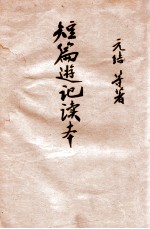 元结 等著
短篇遊记读本